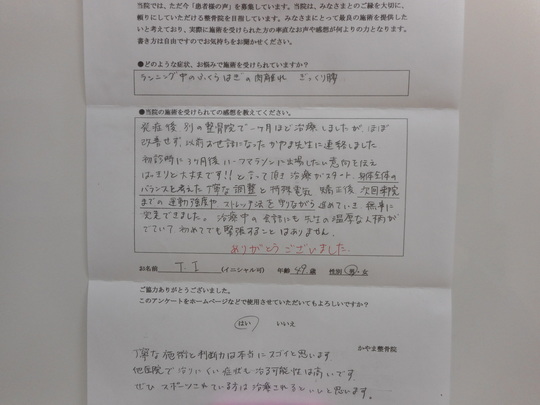 当院では、ただ今「患者様の声」を募集しています。当院は、みなさまとのご縁を大切に、
頼りにしていただける整骨院を目指しています。みなさまにとって最良の施術を提供した
いと考えており、実際に施術を受けられた方の率直なお声や感想が何よりの力となります。
書き方は自由ですのでお気持ちをお聞かせください。
●どのような症状、お悩みで施術を受けられていますか?
ランニング中のふくらはぎの肉離れ ぎっくり腰
●当院の施術を受けられての感想を教えてください。
発症後、別の整骨院で一ヶ月ほど治療しましたが、ほぼ
改善せず、以前お世話になったかやま先生に連絡しました
初診時に3ヶ月後ハーフマラソンに出場したい意向を伝え
はっきりと大丈夫です!!と言って頂き治療がスタート、身体全体の
バランスを考えた丁寧な調整と特殊電気 矯正後、次回来院
までの運動強度や、ストレッチ法を守りながら進めていき、無事に
完走できました。 治療中の会話にも先生の温厚な人柄が
でていて初めてでも緊張することはありません。
ありがとうございました
お名前 T.I (イニシャル可) 年齢 49 歳 性別 男・女
ご協力ありがとうございました。
このアンケートをホームページなどで使用させていただいてもよろしいですか?
はい いいえ
かやま整骨院
丁寧な施術と判断力は本当にスゴイと思います
他医院で治りにくい症状も治る可能性は高いです
ぜひ スポーツされている方は治療されるといいと思います。